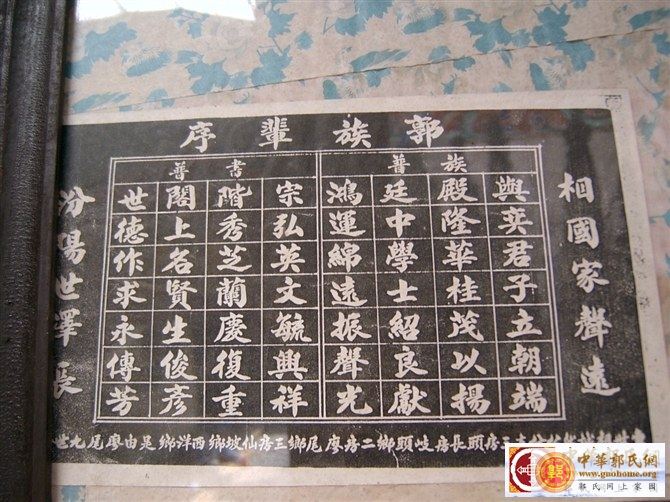 郭族輩序
相國家聲遠
族普
與奕君子立朝端
殿隆華桂茂以揚
廷中學士紹良獻
鴻運綿遠振聲光
書普
宗弘英文毓興祥
階秀芝蘭慶復重
閣上名賢生俊彥
世德作求永傳芳
汾陽世澤長
房頭長房岐頭鄉二房廖尾鄉三房仙坡鄉西洋鄉是由廖尾九世
中華郭氏網
www.guoshi.org
郭氏網上家園